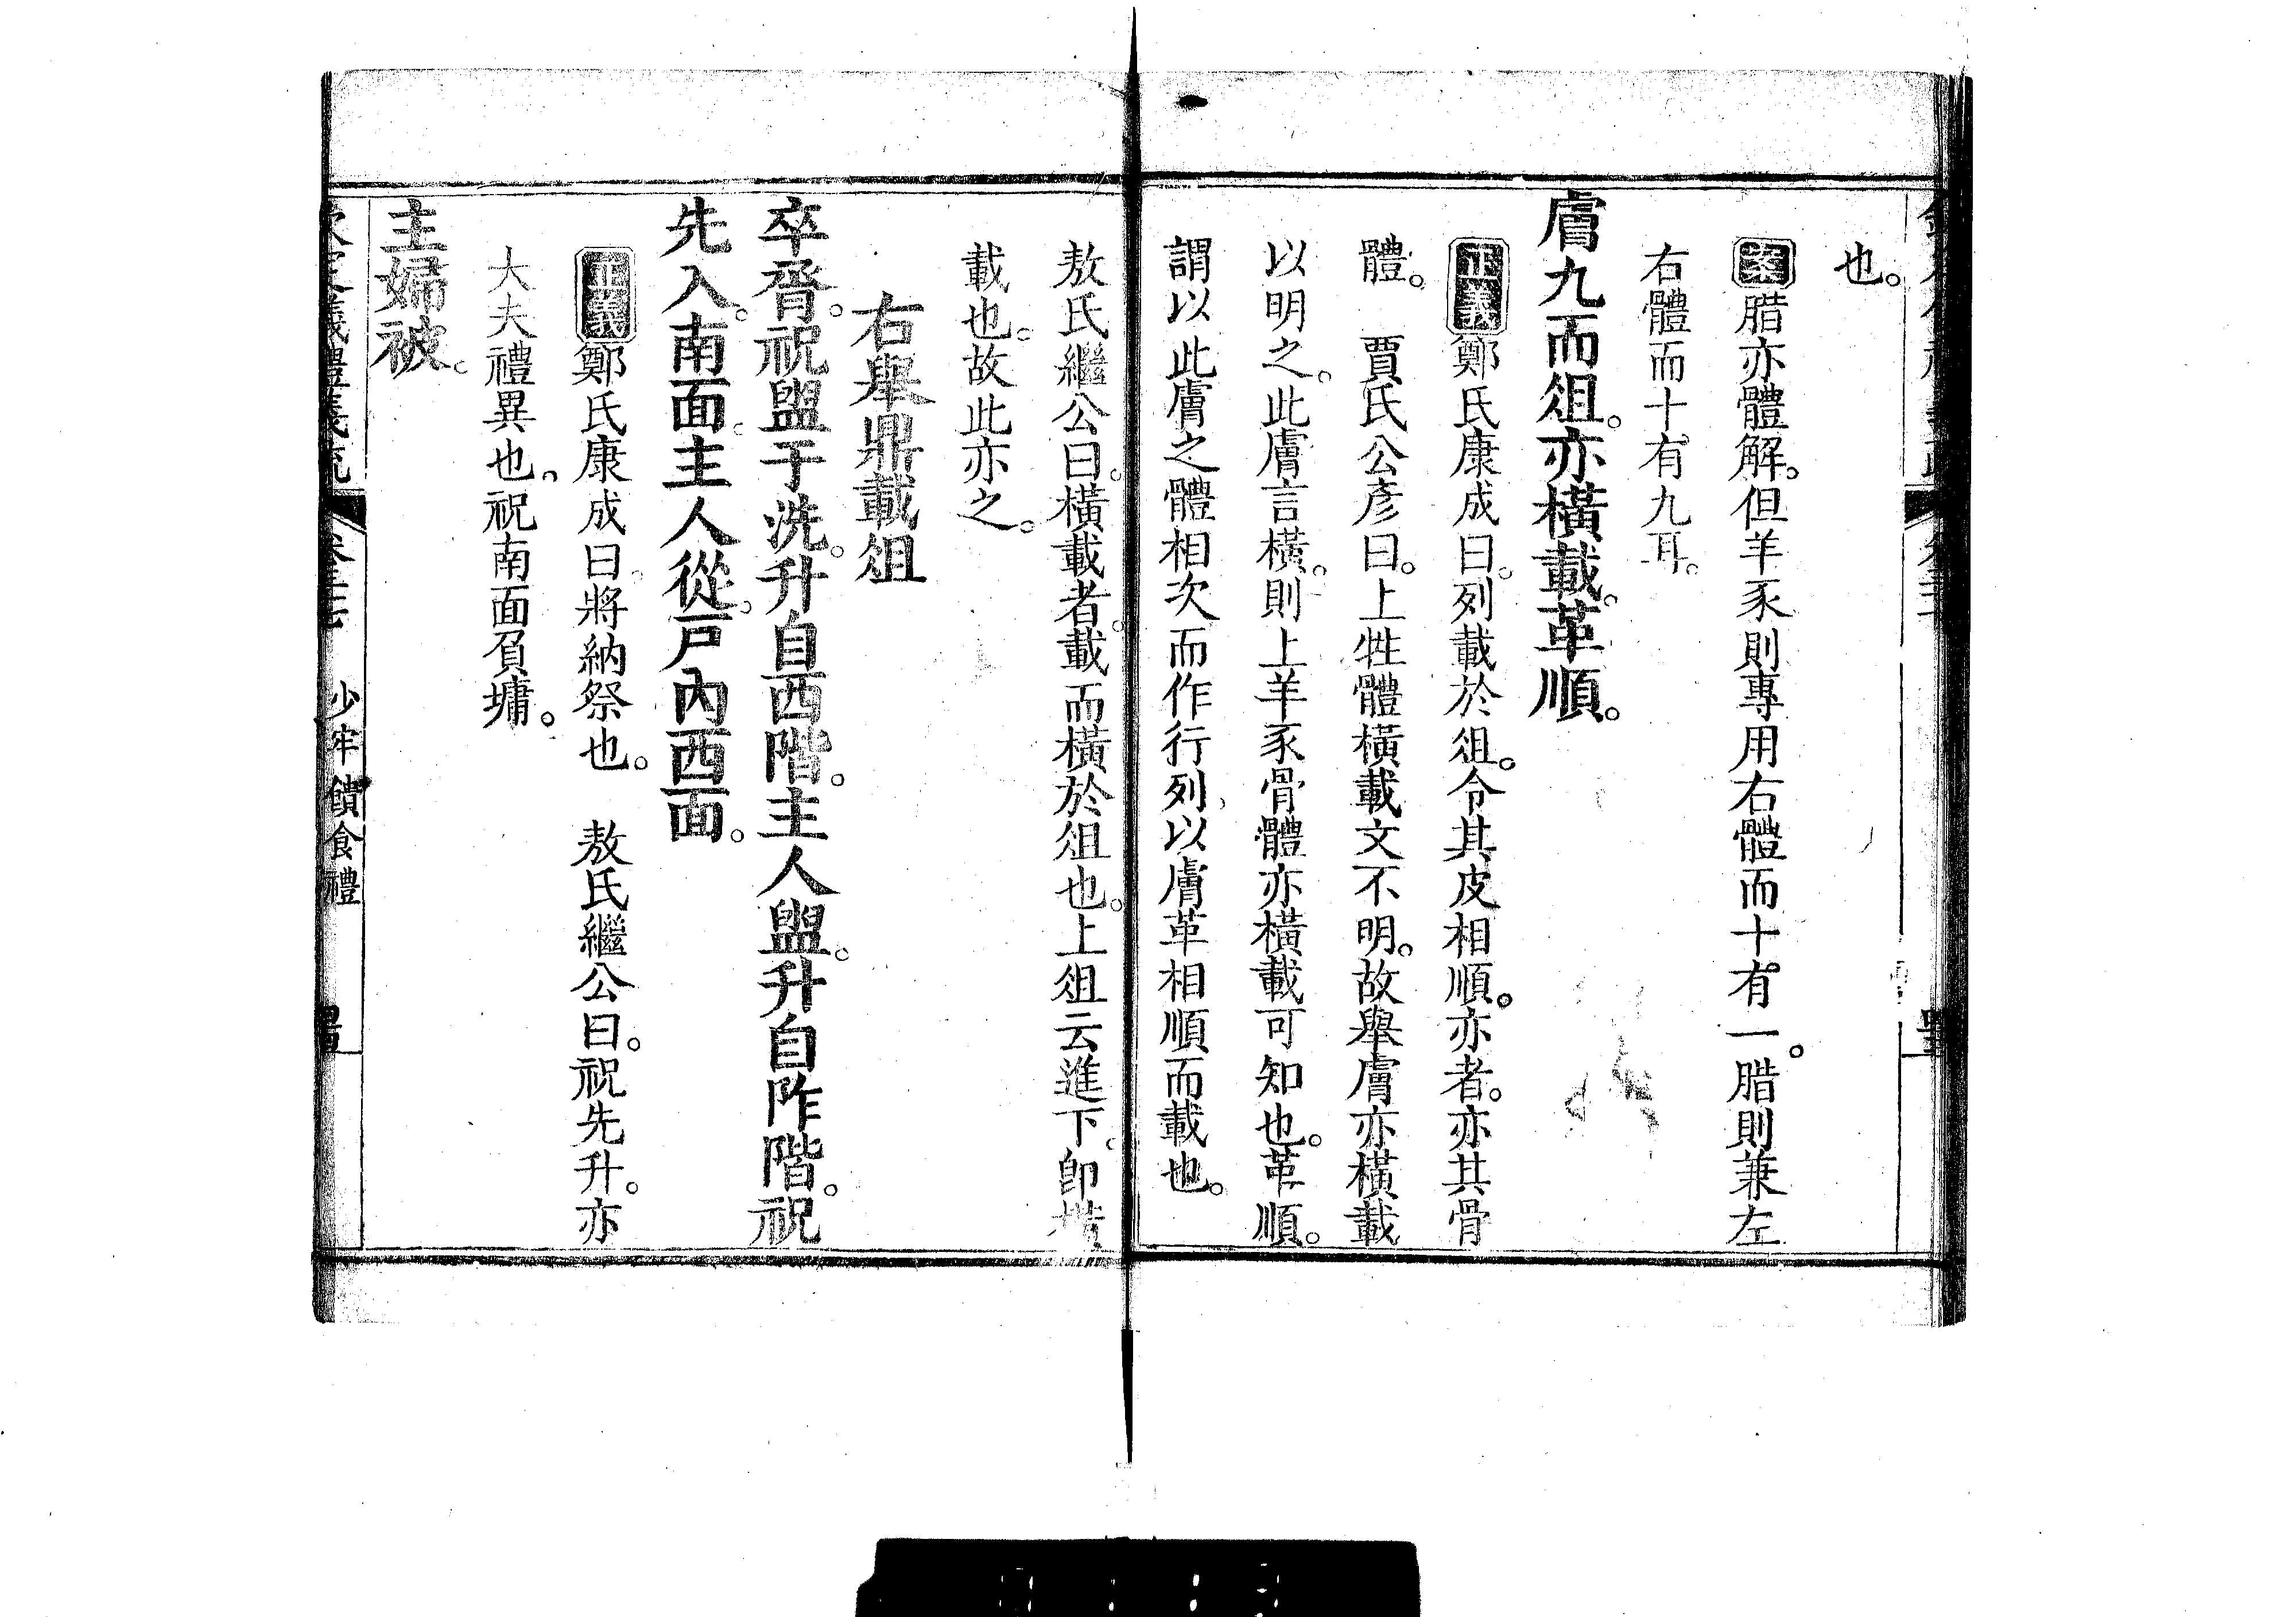 也。
案腊亦體解。但羊豕則專用右體而十有一。腊則兼左
右體而十有九耳。
膚九而俎。亦橫載。革順。
正義鄭氏康成曰。列載於俎。令其皮相順。亦者。亦其骨
體。 賈氏公彥曰。上牲體橫載文不明。故舉膚亦橫載
以明之。此膚言橫。則上羊豕骨體亦橫載可知也。革順。
謂以此膚之體相次而作行列。以膚革相順而載也。
敖氏繼公曰。橫載者。載而橫於俎也。上俎云進下。卽橫
載也。故此亦之。
右舉鼎載俎
卒脀。祝盥于洗。升自西階。主人盥。升自阼階。祝
先入。南面。主人從。戶內西面。
正義鄭氏康成曰。將納祭也。 敖氏繼公曰。祝先升。亦
大夫禮異也。祝南面負墉。
主婦被。
欽定儀禮義疏 卷三十七 少牢饋食禮